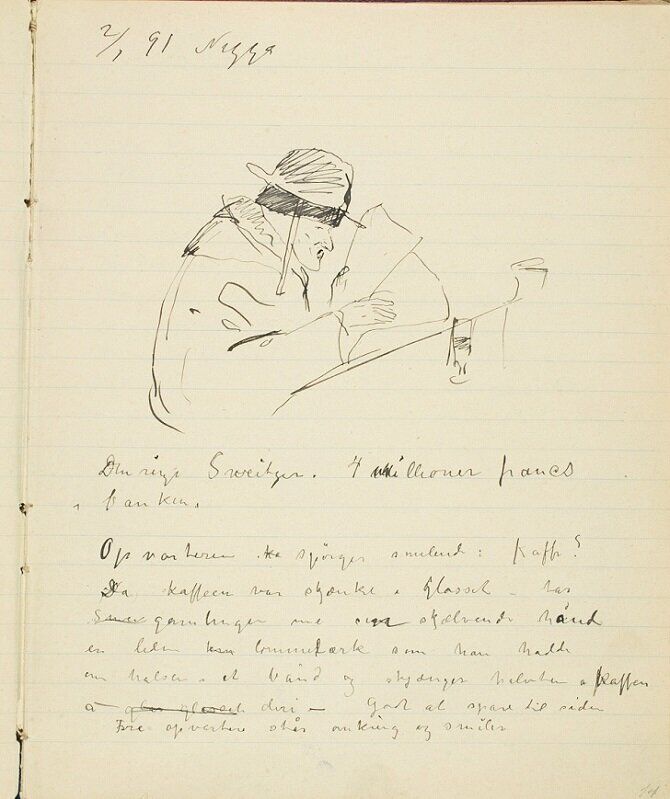 2/1 91 Nizza
Den rige Sweitzer. 4 millioner francs
i banken.
Opvarteren spörger smilende: Kaffe?
Da kaffeen var skjænket i Glasset – tar
gamlingen med sin skjælvende hånd
en liden lommelærk som han hadde
om halsen i et bånd og skjænger halvten a kaffen
deri – Godt at spare til siden
Fire opvartere står omkring og smiler